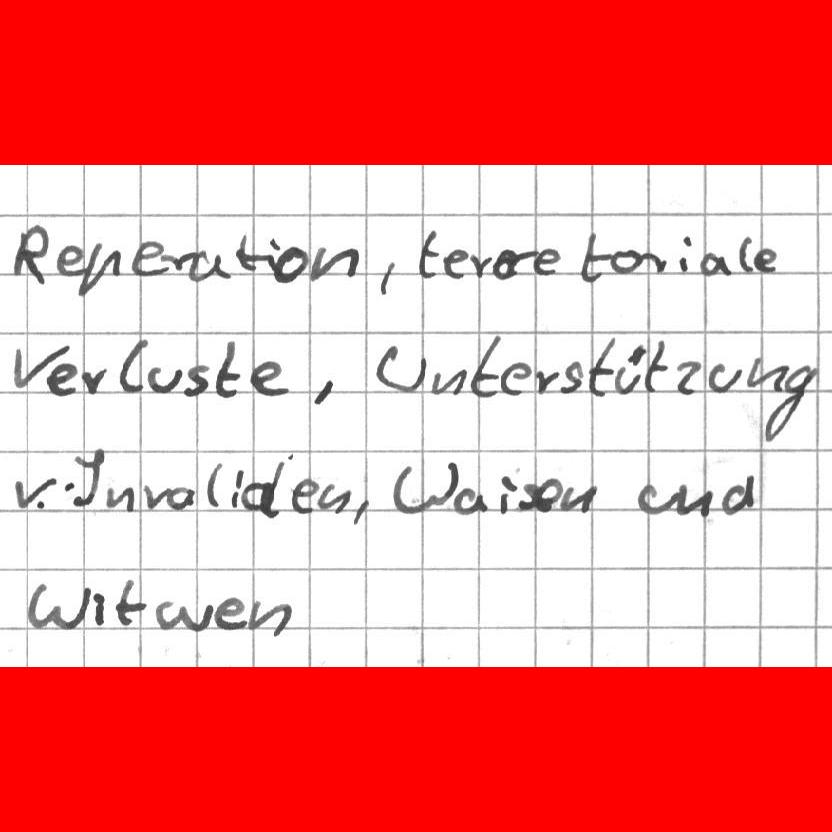 Reperation, terretoriale
Verluste, Unterstützung
v. Invaliden, Waisen und
Witwen